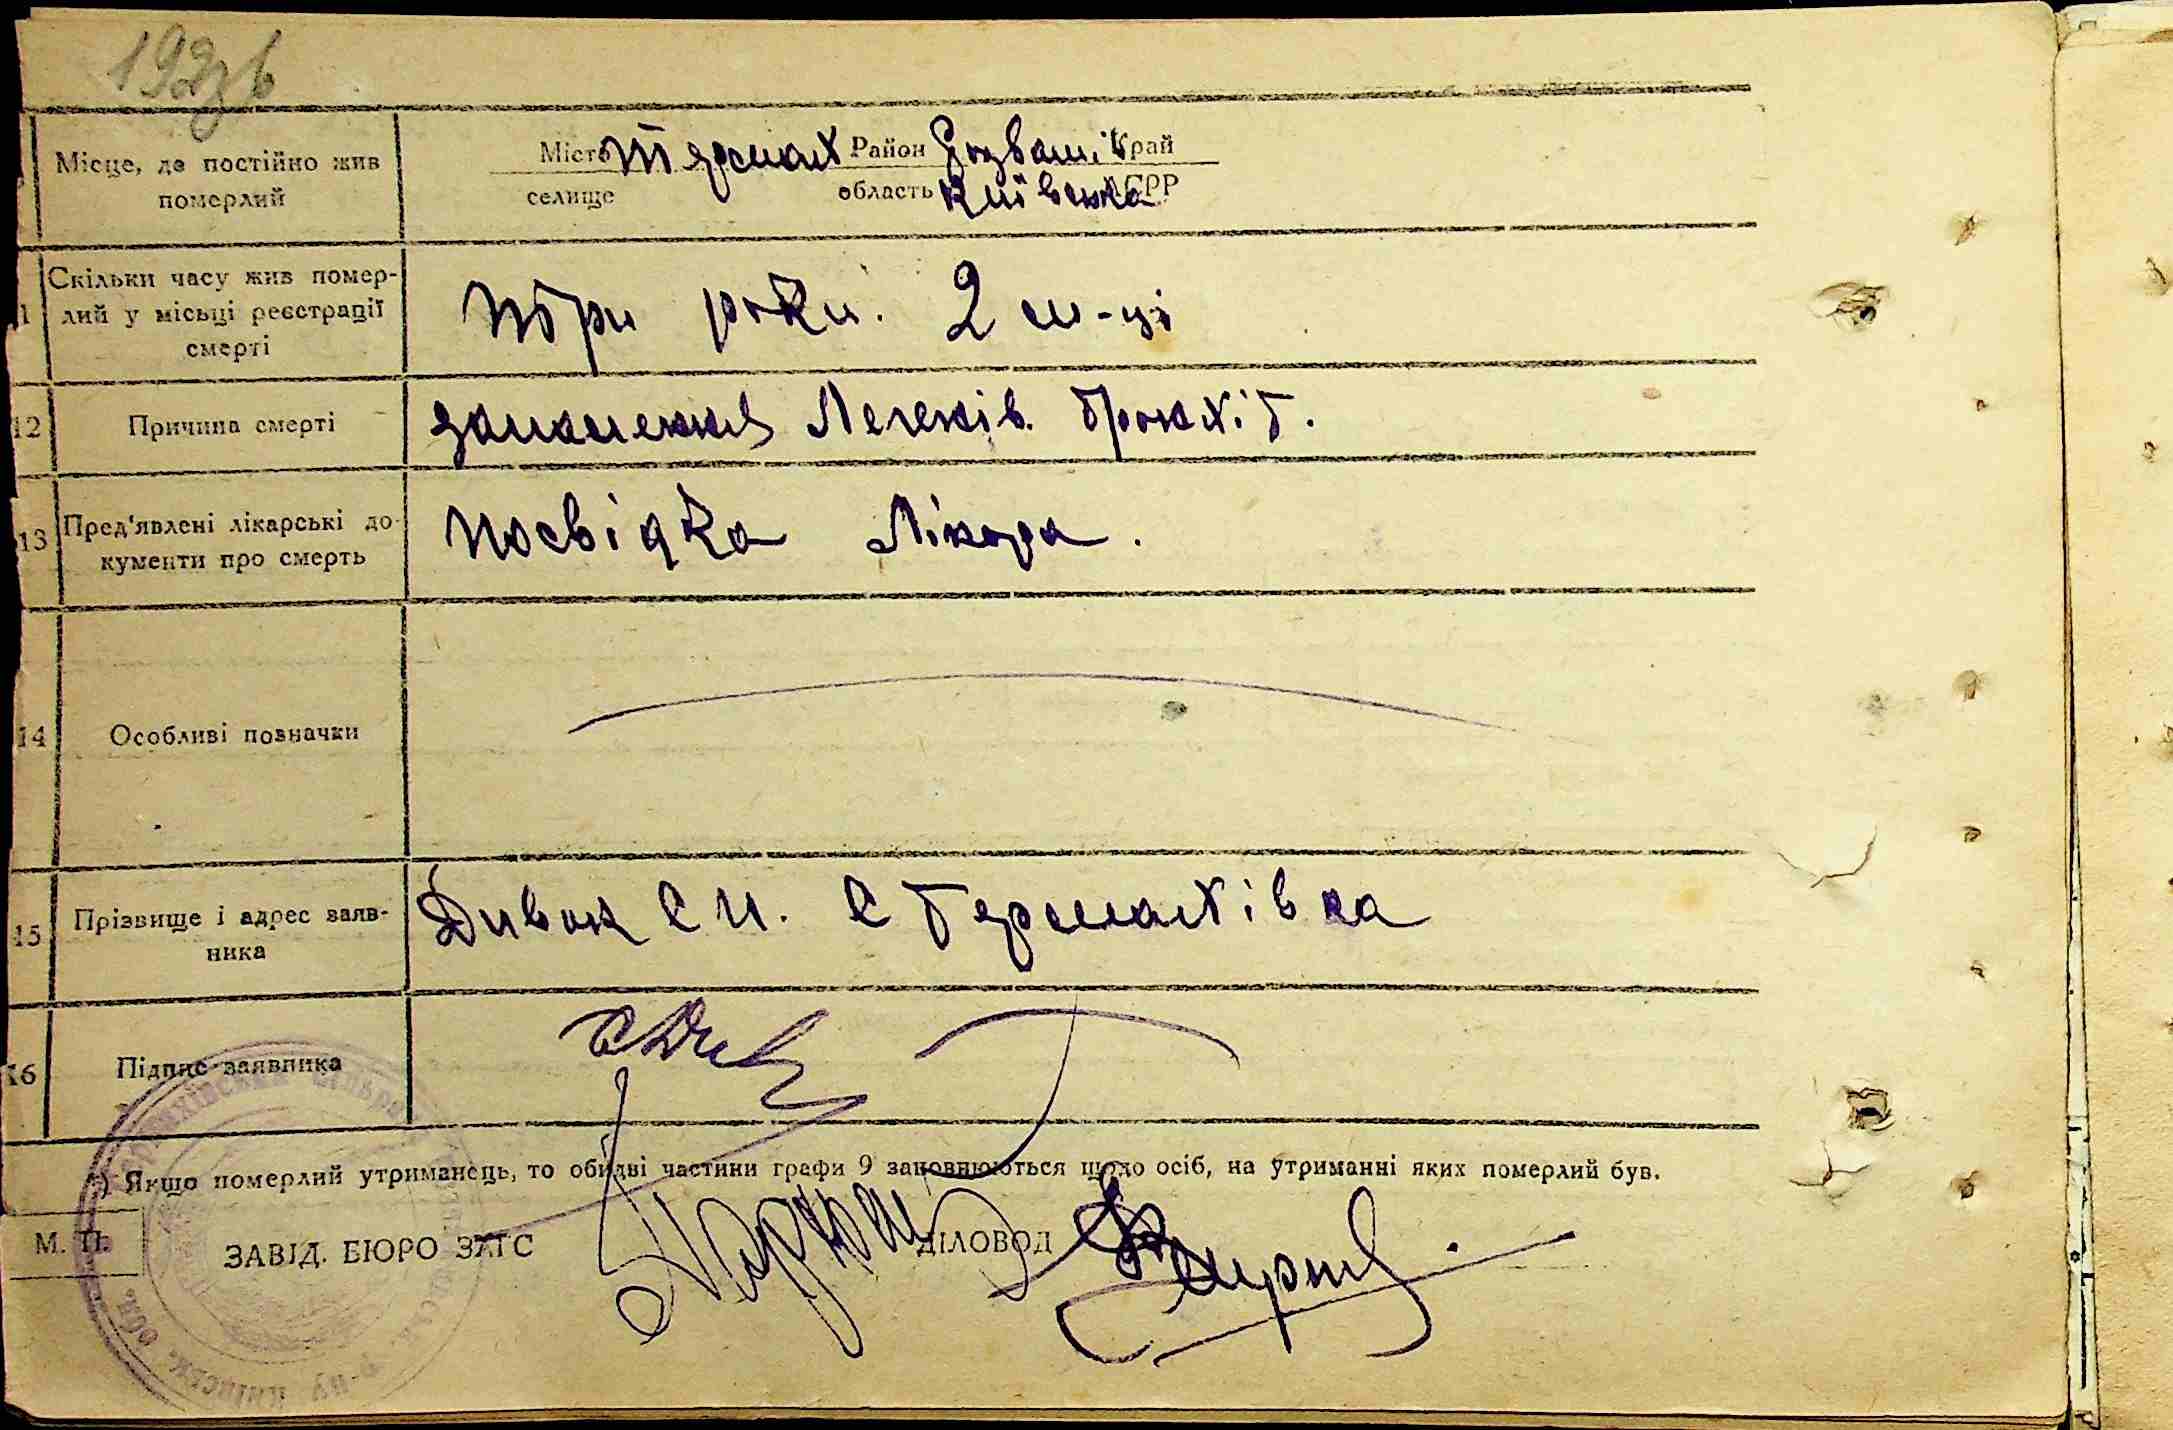 192зв
Місце, де постійно жив
померлий
Місто Термах Район Розваш край
селище область Київська АСРР
Скільки часу жив помер-
лий у місьці реєстрації
смерті
три роки. 2 м-ці
12 Причина смерті
запалення легенів. бронхіт.
13 Пред'явлені лікарські до-
кументи про смерть
посвідка Лікара.
14 Особливі позначки
15 Прізвище і адрес заяв-
ника
Дивак С И. С Термахівка
16 Підпис заявника
*) Якщо померлий утриманець, то обидві частини графи 9 заповнюються щодо осіб, на утриманні яких померлий був.
М. П.
ЗАВІД. БЮРО ЗАГС
ДІЛОВОД